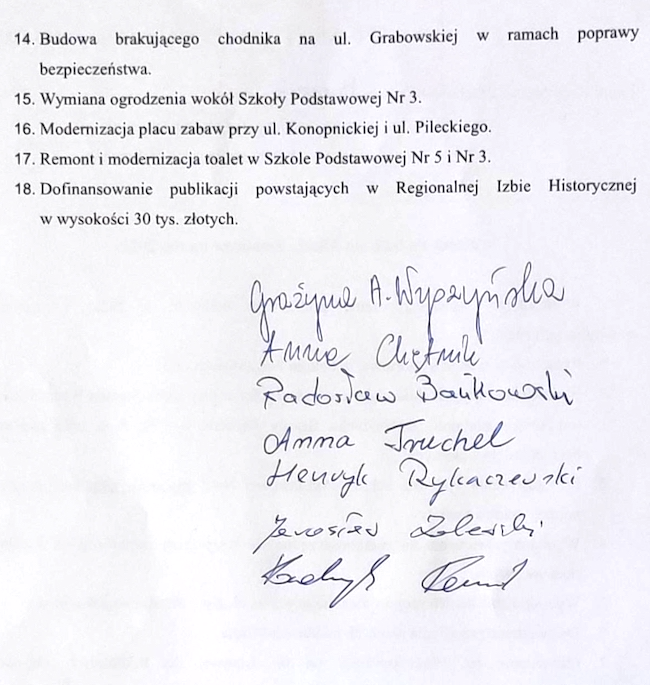 14. Budowa brakującego chodnika na ul. Grabowskiej w ramach poprawy
bezpieczeństwa.
15. Wymiana ogrodzenia wokół Szkoły Podstawowej Nr 3.
16. Modernizacja placu zabaw przy ul. Konopnickiej i ul. Pileckiego.
17. Remont i modernizacja toalet w Szkole Podstawowej Nr 5 i Nr 3.
18. Dofinansowanie publikacji powstających w Regionalnej Izbie Historycznej
w wysokości 30 tys. złotych.
Grażyna A. Wyszyńska
Anna Chętnik
Radosław Bańkowski
Anna Truchel
Henryk Rykaczewski
Jarosław Zalewski